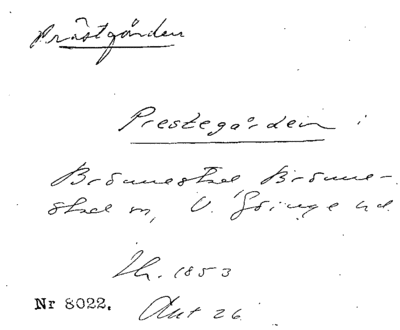 Prästgården
Prestegården i
Brönnestad Brönne-
stad sn, V. Göinge hd.
Th. 1853
Nr 8022. Akt 26